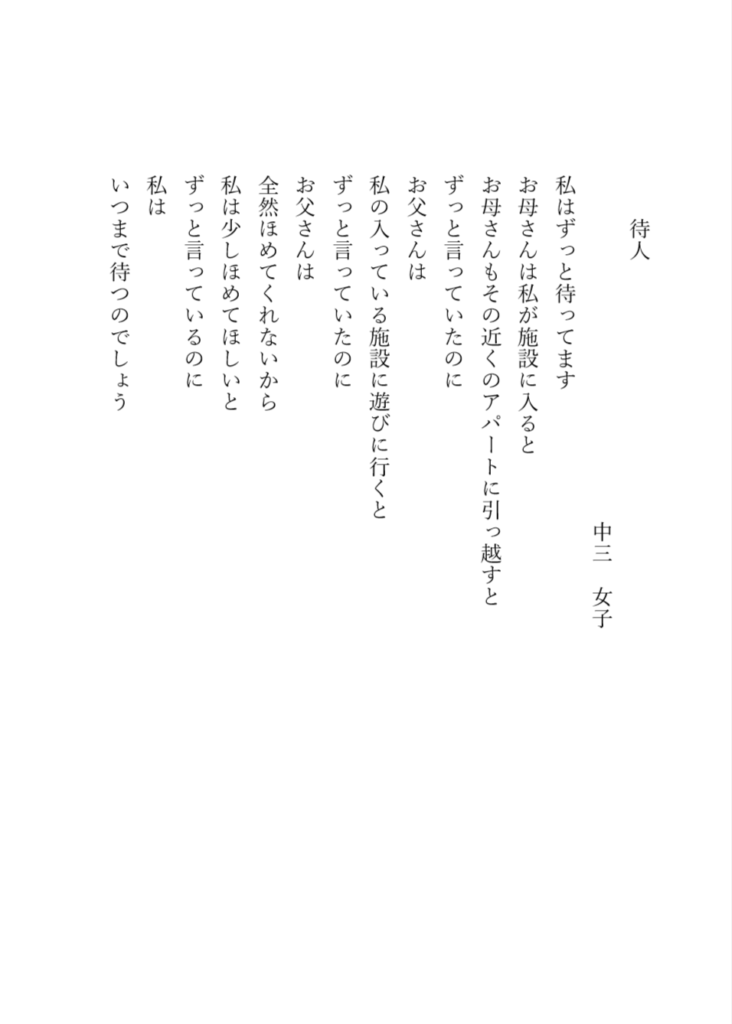 待人
中三　女子
私はずっと待ってます
お母さんは私が施設に入ると
お母さんもその近くのアパートに引っ越すと
ずっと言っていたのに
お父さんは
私の入っている施設に遊びに行くと
ずっと言っていたのに
お父さんは
全然ほめてくれないから
私は少しほめてほしいと
ずっと言っているのに
私は
いつまで待つのでしょう